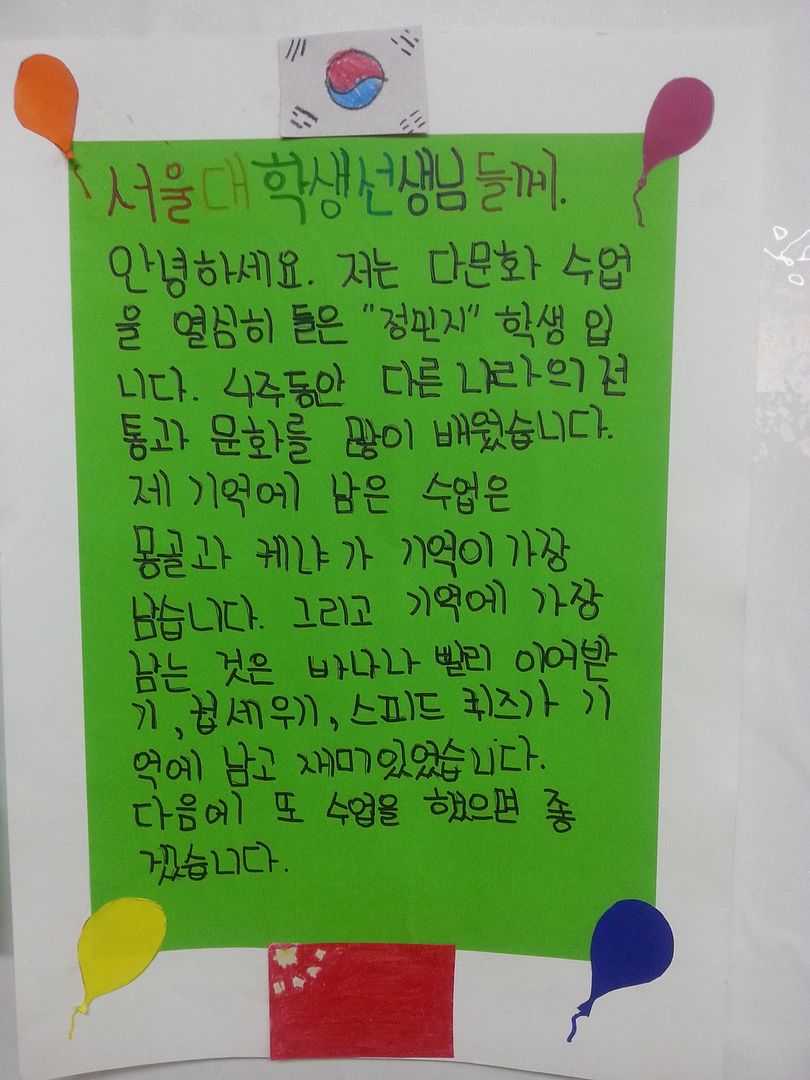 서울대학생선생님들께.
안녕하세요. 저는 다문화 수업
을 열심히 들은 "정민지" 학생 입
니다. 4주동안 다른 나라의 전
통과 문화를 많이 배웠습니다.
제 기억에 남은 수업은
몽골과 케냐가 기억이 가장
남습니다. 그리고 기억에 가장
남는 것은 바나나 빨리 이어받
기, 컵세우기, 스피드 퀴즈가 기
억에 남고 재미있었습니다.
다음에 또 수업을 했으면 좋
겠습니다.